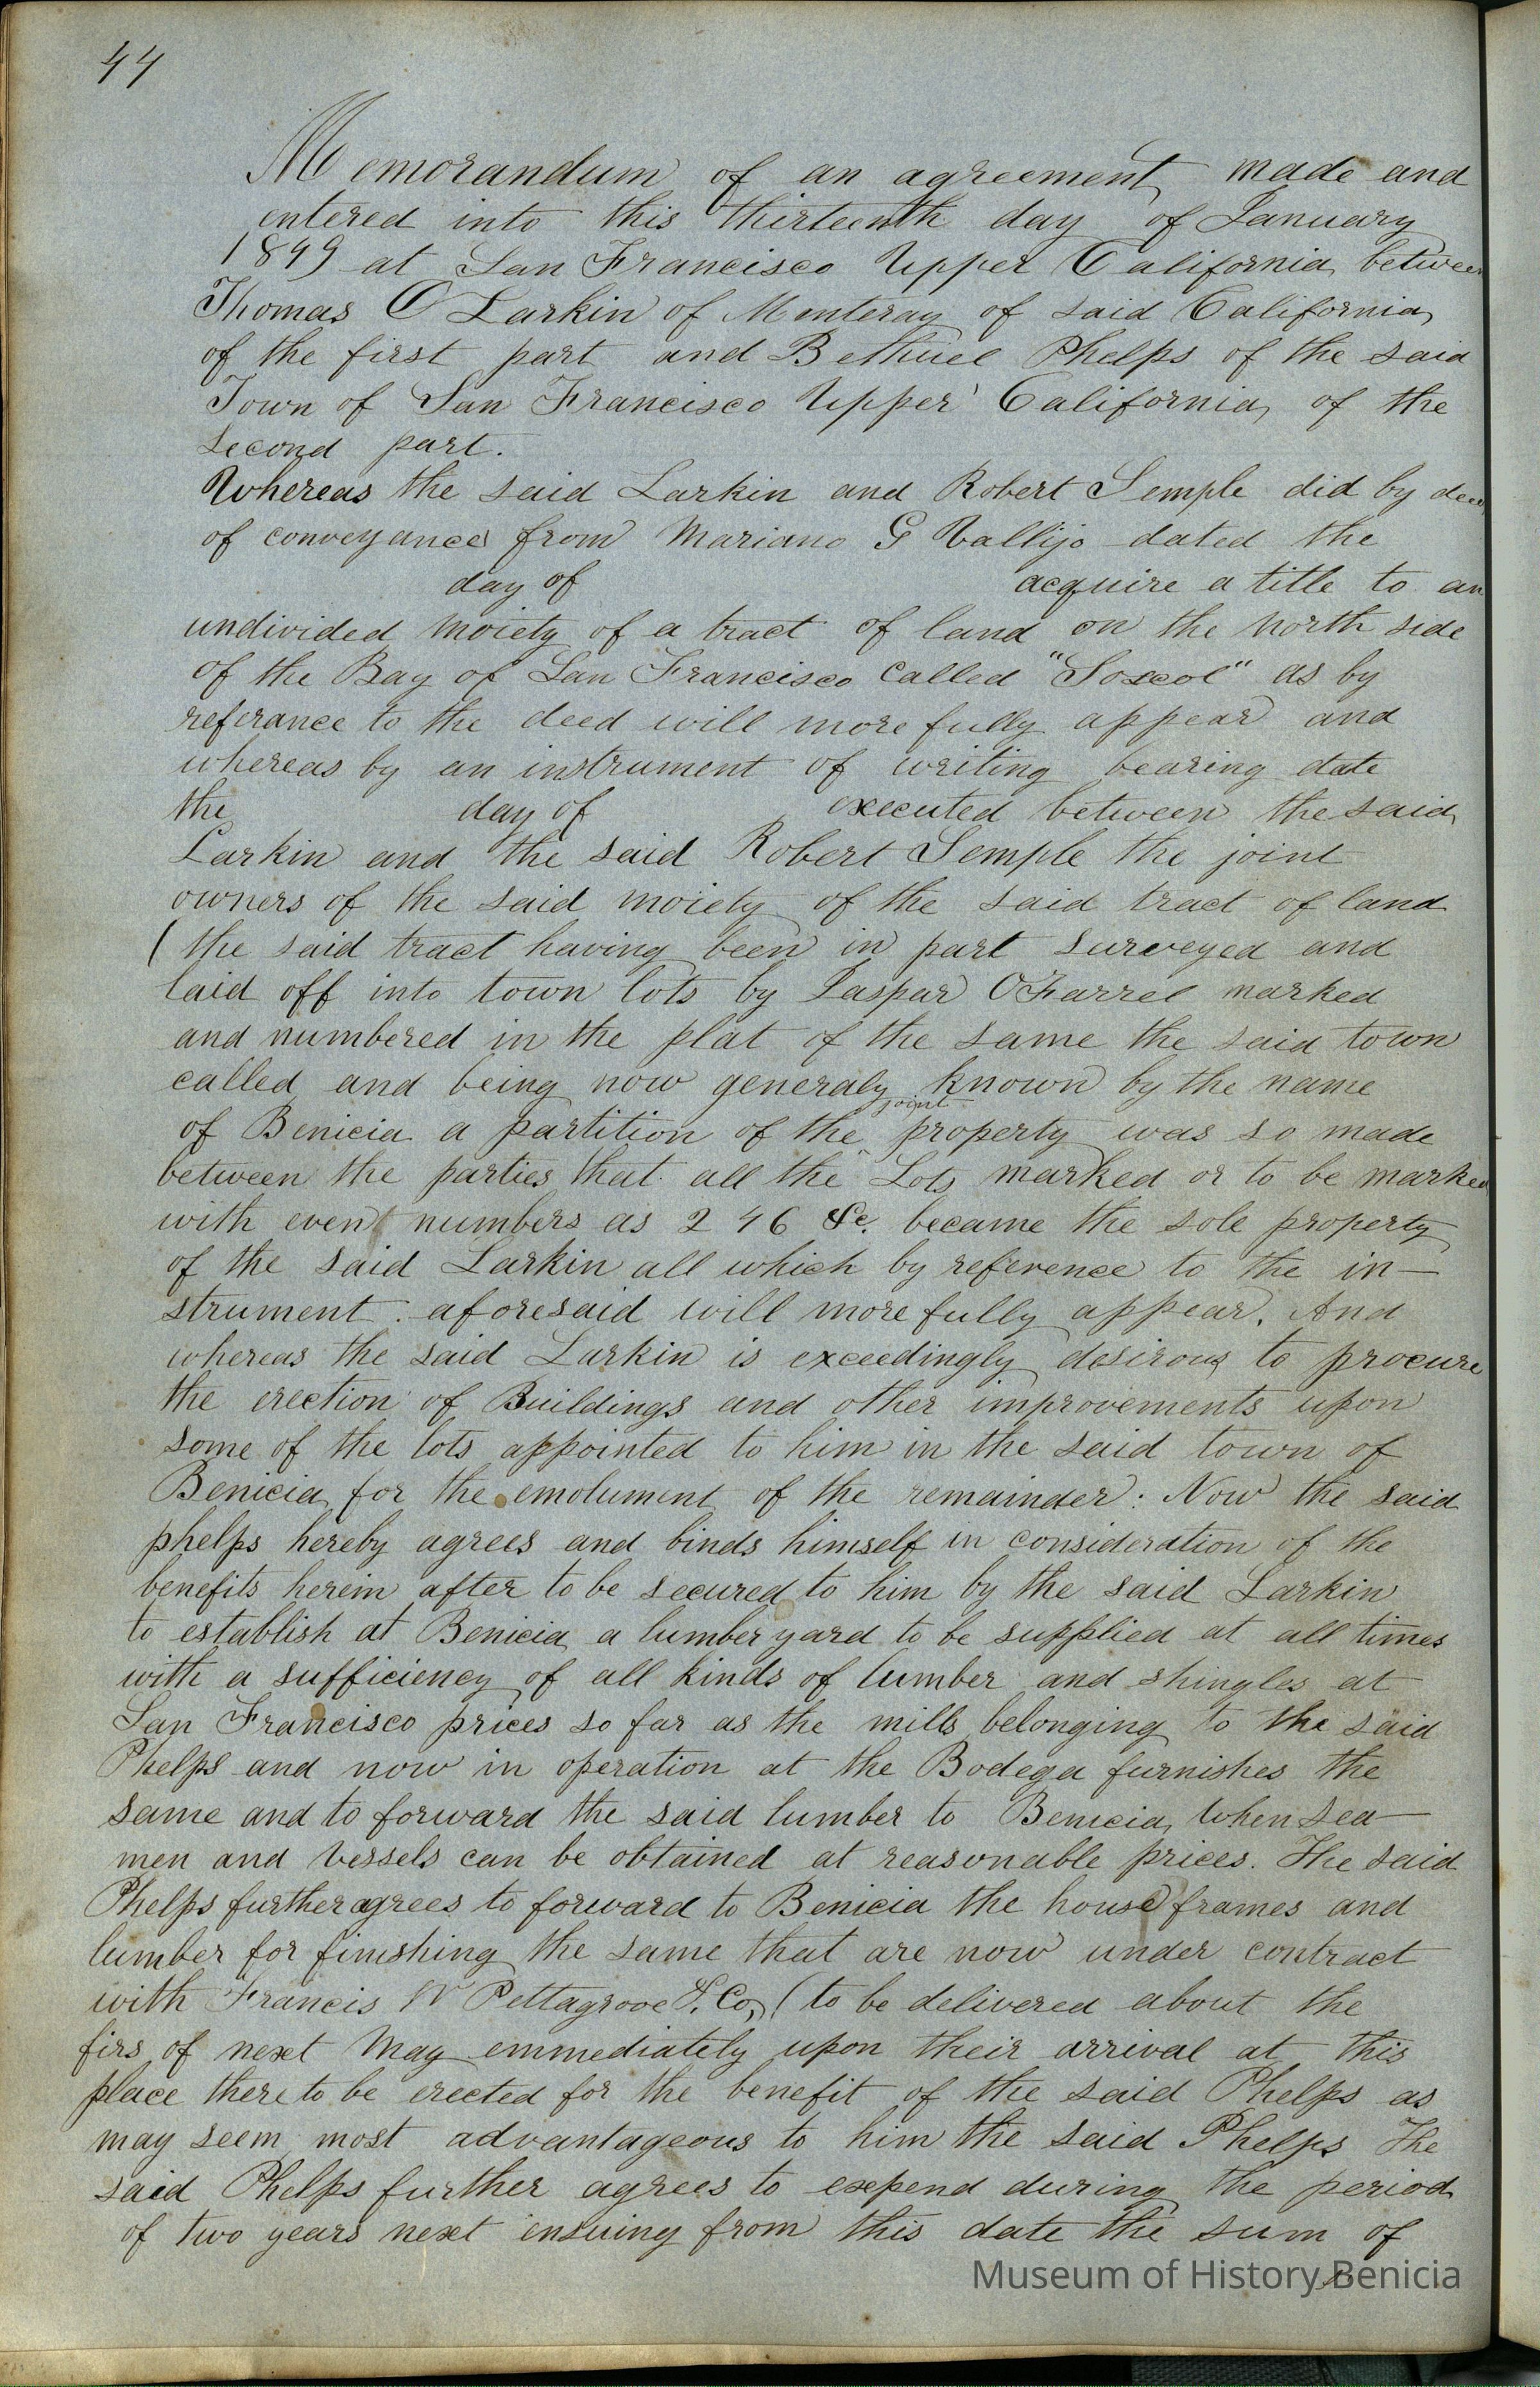 44
Memorandum of an agreement made and
entered into this thirteenth day of January
1849 at San Francisco Upper California between
Thomas O Larkin of Monteray of said California
of the first part and Bethuel Phelps of the said
Town of San Francisco Upper California of the
second part.
Whereas the said Larkin and Robert Semple did by deed
of conveyance from Mariano G Vallijo dated the
day of acquire a title to an
undivided moiety of a tract of land on the north side
of the Bay of San Francisco called "Soscol" as by
referance to the deed will more fully appear and
whereas by an instrument of writing bearing date
the day of executed between the said
Larkin and the said Robert Semple the joint
owners of the said moiety of the said tract of land
(the said tract having been in part surveyed and
laid off into town lots by Jaspar O'Farrel marked
and numbered in the plat of the same the said town
called and being now generaly known by the name
of Benicia a partition of the joint property was so made
between the parties that all the Lots marked or to be marked
with even numbers as 2 4 6 &c. became the sole property
of the said Larkin all which by reference to the in-
strument aforesaid will more fully appear. And
whereas the said Larkin is exceedingly desirous to procure
the erection of Buildings and other improvements upon
some of the lots appointed to him in the said town of
Benicia for the emolument of the remainder: Now the said
phelps hereby agrees and binds himself in consideration of the
benefits herein after to be secured to him by the said Larkin
to establish at Benicia a lumber yard to be supplied at all times
with a sufficiency of all kinds of lumber and shingles at
San Francisco prices so far as the mills belonging to the said
Phelps and now in operation at the Bodega furnishes the
same and to forward the said lumber to Benicia when sea-
men and vessels can be obtained at reasonable prices. The said
Phelps further agrees to forward to Benicia the house frames and
lumber for finishing the same that are now under contract
with Francis W Pettagrove & Co, (to be delivered about the
firs of next May emmediately upon their arrival at this
place there to be erected for the benefit of the said Phelps as
may seem most advantageous to him the said Phelps The
said Phelps further agrees to expend during the period
of two years next ensuing from this date the sum of
Museum of History Benicia